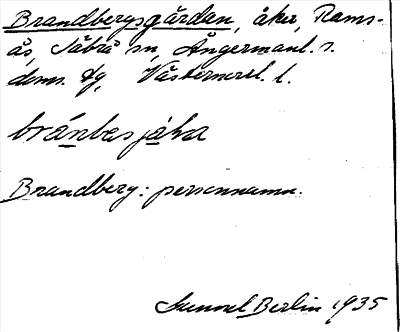 Brandbergsgärdan, åker, Rams-
ås, Säbrå sn, Ångermanl. s.
doms. dg, Västernorrl. l.
bránbas jáḷa
Brandberg: personnamn.
Sunnel Berlin 1935